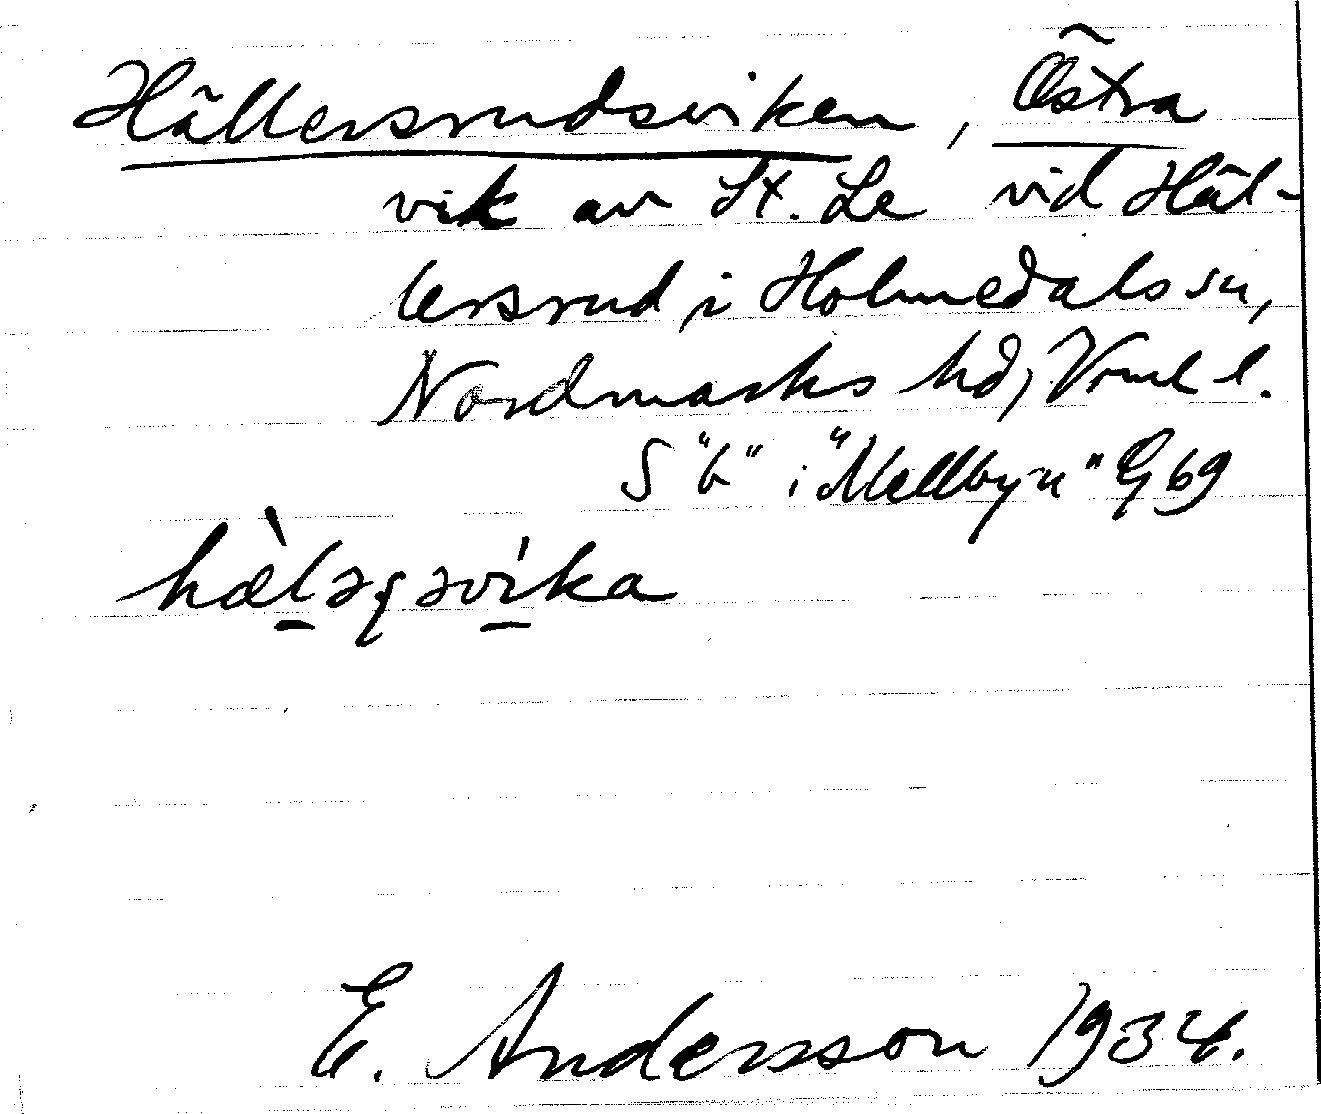 Hällersrudsviken, Östra
vik av St. Le vid Häl-
lersrud i Holmedals sn,
Nordmarks hd, Vrml l.
S "b" i "Mellbyn" G 69
hæ̀lə ə víka
E. Andersson 1934.